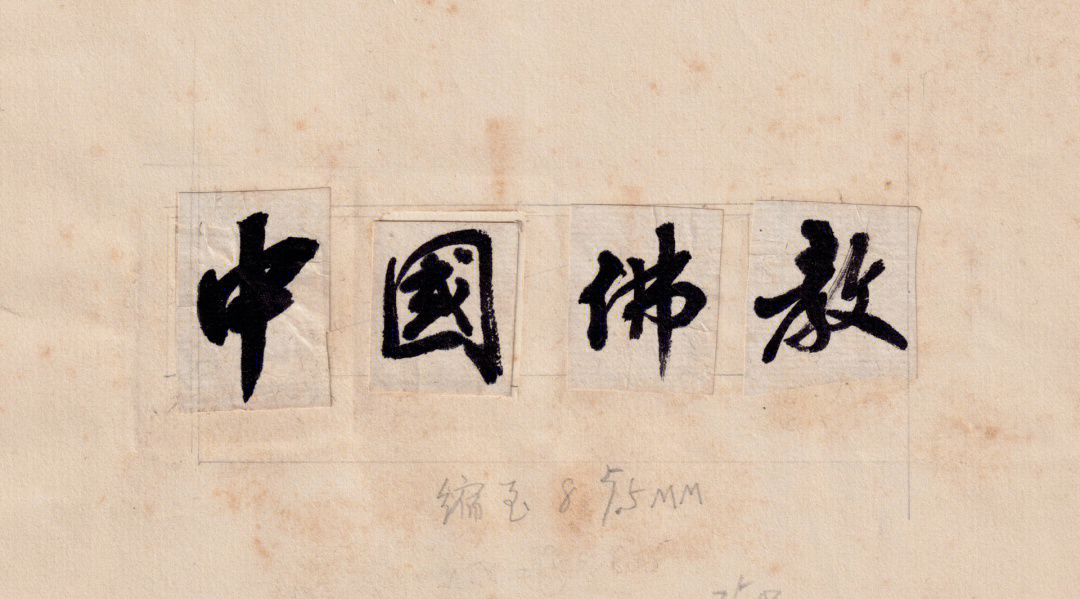 中國佛教
缩至 8 5.5MM